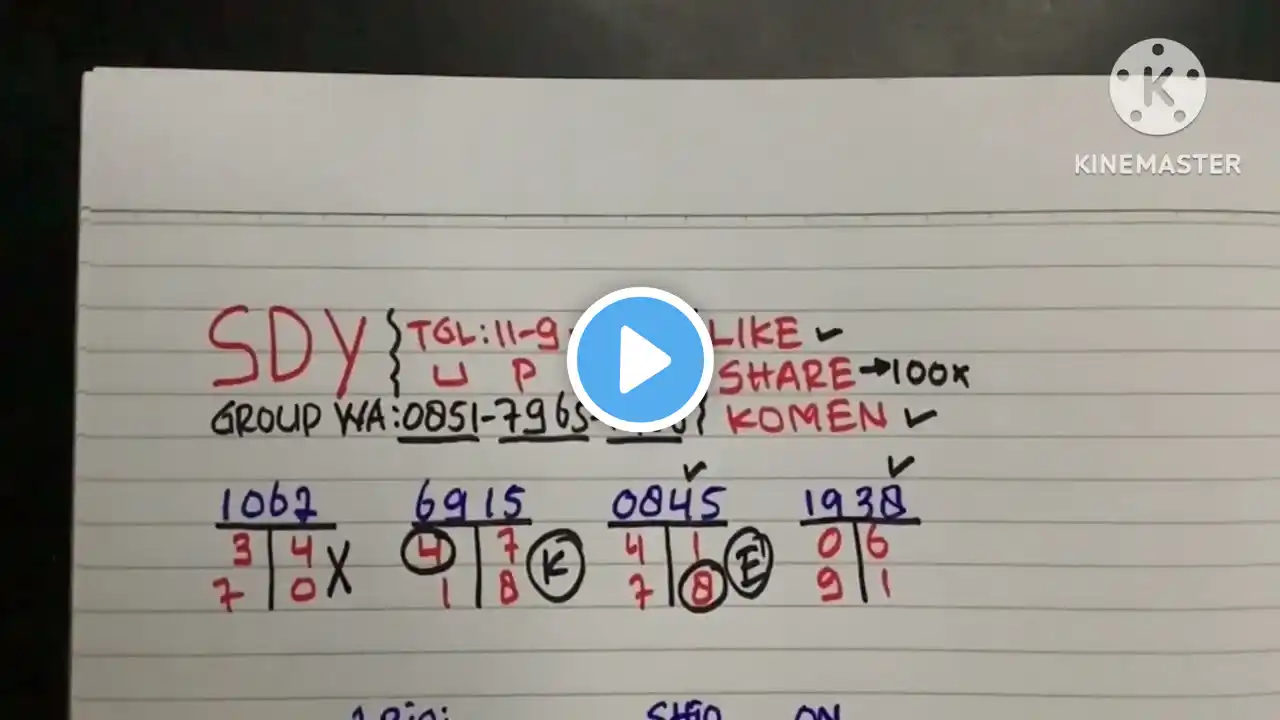 KINEMASTER
SDY { TGL: 11-9 LIKE ✓
U P SHARE → 100x
GROUP WA: 0851-7965- } KOMEN ✓
1067 6915 0845 1938
3 4 X 4 7 K 4 1 E 0 6
7 0 1 8 7 8 9 1